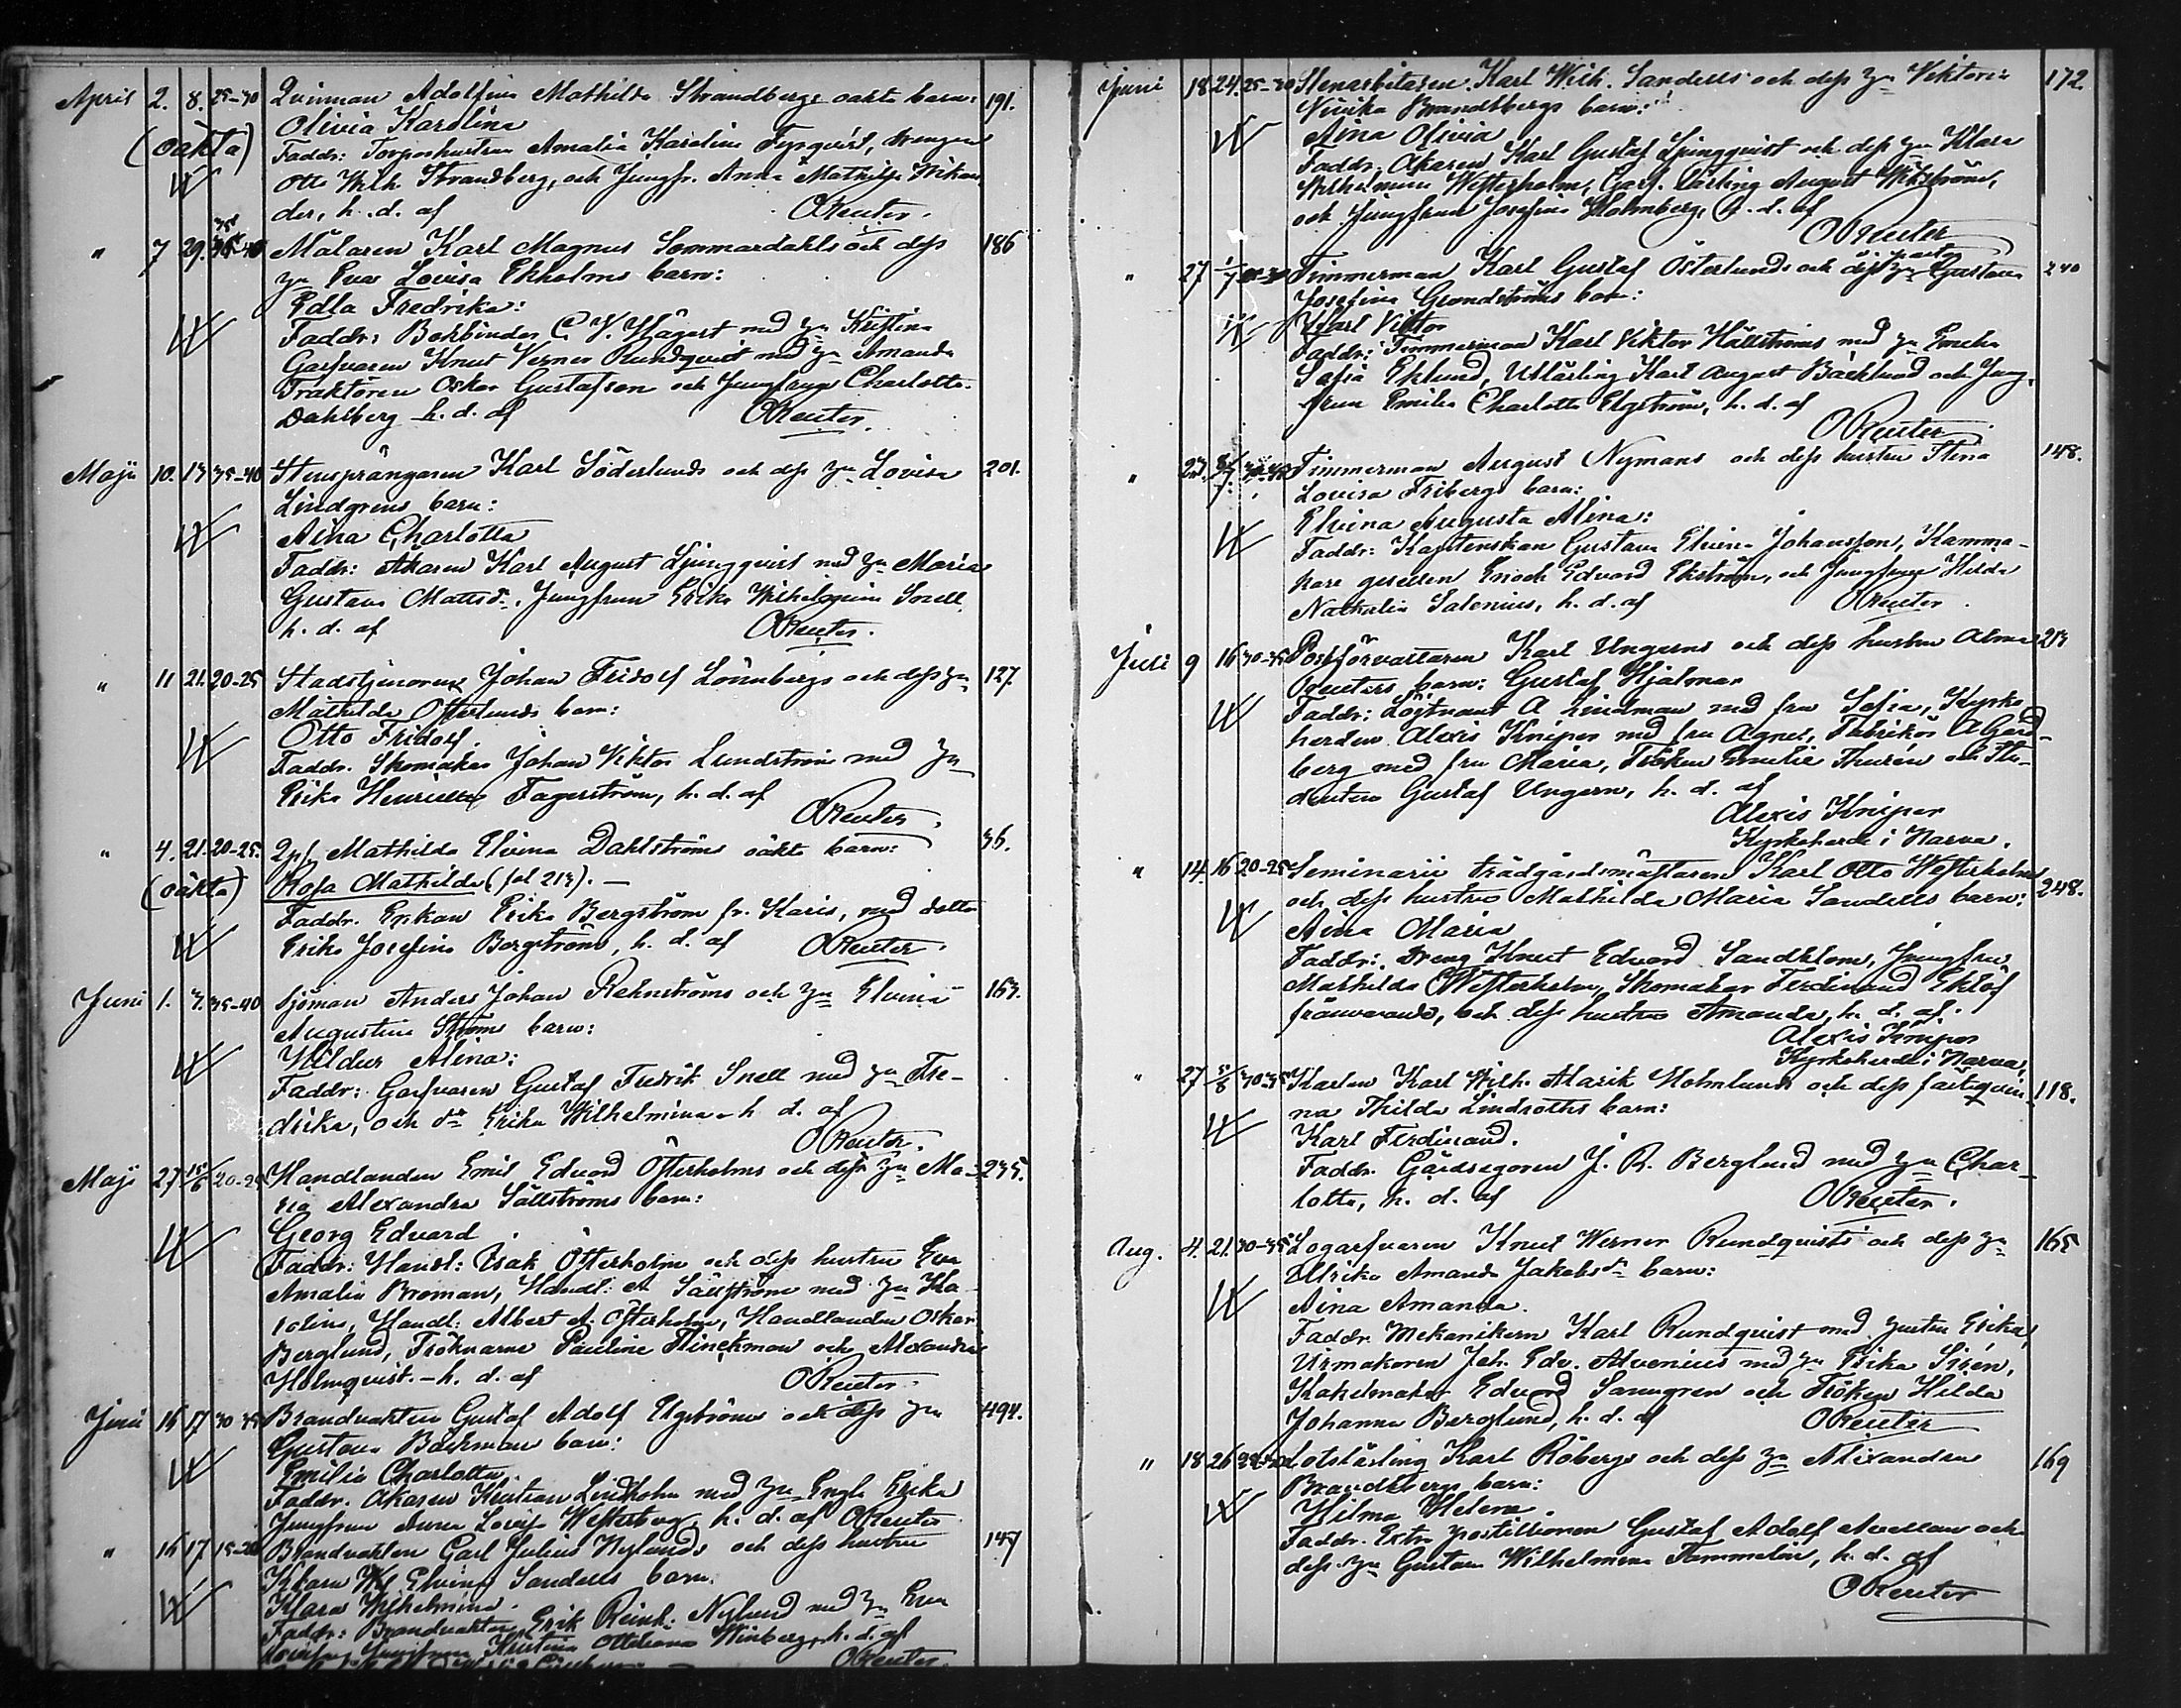 April 2. 8. 25-30 Qvinnan Adolfina Mathilda Strandbergs oäkta barn: 191.
Olivia Karolina
(oäkta) Faddr: Torparhustrun Amalia Karolina Fyrqvist, drengen
Otto Wilh Strandberg, och Jungfr. Anna Mathilda Wikan
der, h. d. af OReuter.
" 7 29. Målaren Karl Magnus Sommardahls och dess 186
hu Eva Lovisa Ekholms barn:
Edla Fredrika:
Faddr: Bokbinder C. V. Hägert med hu Kristina
Garfvaren Knut Verner Rundqvist med hu Amanda
Traktören Oskar Gustafson och Jungfrun Charlotta
Dahlberg h. d. af OReuter.
Maji 10. 13 35-40 Stensprängaren Karl Söderlunds och dess hu Lovisa 201.
Lindgrens barn:
Aina Charlotta
Faddr: Åkaren Karl August Ljungqvist med hu Maria
Gustava Mattsdr. Jungfrun Erika Wilhelmina Snell
h. d. af OReuter.
" 11 21. 20-25 Stadstjenaren Johan Fridolf Lönnbergs och dess hu 127
Mathilda Österlunds barn:
Otto Fridolf.
Faddr. Skomakar Johan Viktor Lundström med hu
Erika Henrietta Fagerström, h. d. af
OReuter.
" 4. 21. 20-25. Qpf Mathilda Elvina Dahlströms oäkta barn: 36.
(oäkta) Rosa Mathilda (fol 213). —
Faddr. Enkan Erika Bergström fr. Karis, med dotter
Erika Josefina Bergström, h. d. af OReuter.
Juni 1. 3. 35-40 Sjöman Anders Johan Rehnströms och hu Elvina 163.
Augustina Ströms barn:
Hildur Alina:
Faddr: Garfvaren Gustaf Fredrik Snell med hu Fre-
drika, och dr Erika Wilhelmina - h d. af
OReuter.
Maji 27 15/6 20-25 Handlanden Emil Edvard Österholms och dess hu Ma- 235.
ria Alexandra Sällströms barn:
Georg Edvard
Faddr: Handl: Isak Österholm och dess hustru Eva
Amalia Broman, Handl: A Sällström med hu Ka-
rolina, Handl: Albert A. Österholm, Handlanden Oskar
Berglund, Fröknarne Pauline Flinckman och Alexandra
Holmqvist. - h. d. af OReuter.
Juni 16 17 30 35 Brandvakten Gustaf Adolf Elgströms och dess hu 494.
Gustava Bäckman barn:
Emilia Charlotta.
Faddr. Åkaren Kristian Lindholm med hu Engla Erika
Jungfrun Anna Lovisa Westerberg h. d. af OReuter
" 16 17 15-20 Brandvakten Carl Julius Nylunds och dess hustru 147
Klara Elvina Sandells barn.
Klara Wilhelmina.
Faddr: Brandvakten Erik Reinh. Nylund med hu Eva
Jungfrun Kristina Ottiliana Winberg, h. d. af
OReuter.
Juni 18 24. 25-30 Stenarbetaren Karl Wilh. Sandells och dess hu Viktoria 172.
Brandtbergs barn:
Aina Olivia
Faddr, Åkaren Karl Gustaf Ljungqvist och dess hu Klara
Wilhelmina Westerholm, Garf. lärling August Wikström,
och Jungfrun Josefina Holmberg, h. d. af
OReuter
" 27 1/7 Timmerman Karl Gustaf Österlunds och dess hu Gustava 240
Josefina Grondströms barn:
Karl Viktor
Faddr: Timmerman Karl Viktor Hällströms med hu Emelia
Sofia Eklund, Utlärling Karl August Bäcklund och Jung
frun Emilia Charlotta Elgström, h. d. af
OReuter
" 23. Timmerman August Nymans och dess hustru Stina 148.
Lovisa Fribergs barn:
Elvina Augusta Alina:
Faddr: Kaptenskan Gustava Elvira Johansson, Kamma-
kare gesellen Enoch Edvard Ekström, och Jungfrun Hilda
Nathalia Salenius, h. d. af OReuter.
Juli 9 16 30-35 Postförvaltaren Karl Ungerns och dess hustru Alma 213
Reuters barn: Gustaf Hjalmar
Faddr: Löjtnant A Lindman med fru Sofia, Kyrko
herden Alexis Kniper med fru Agnes, Fabrikör A Gard-
berg med fru Maria, Fröken Emelie Thurén och Stu-
denten Gustaf Ungern, h. d. af
Alexis Kniper
Kyrkoherde i Narva.
" 14. 16 20-25 Seminarii trädgårdsmästaren Karl Otto Westerholms
och dess hustru Mathilda Maria Sandells barn: 248.
Aina Maria
Faddr: Dreng Knut Edvard Sandblom, Jungfru
Mathilda Westerholm, Skomakar Ferdinand Eklöf
frånvarande, och dess hustru Amanda, h. d. af.
Alexis Kniper
Kyrkoherde i Narva,
" 27 5/8 30-35 Karlen Karl Wilh. Alarik Holmlunds och dess fästeqvin- 118.
na Thilda Lindroths barn:
Karl Ferdinand.
Faddr. Gårdsegaren J. R. Berglund med hu Char-
lotta, h. d. af OReuter.
Aug. 4. 21. 30-35 Logarfvaren Knut Werner Rundqvists och dess hu 165
Ulrika Amanda Jakobsdr barn:
Aina Amanda.
Faddr. Mekanikern Karl Rundqvist med hustru Erika,
Urmakaren Joh. Edv. Alvenius med hu Erika Sirén,
Kakelmakar Edvard Sanngren och Fröken Hilda
Johanna Berglund, h. d. af OReuter
" 18 26 Lotslärling Karl Röbergs och dess hu Alexandra 169
Brandtbergs barn:
Hilma Helena.
Faddr. Extr. postillionen Gustaf Adolf Avellan och
dess hu Gustava Wilhelmina Tammelin, h. d. af
OReuter